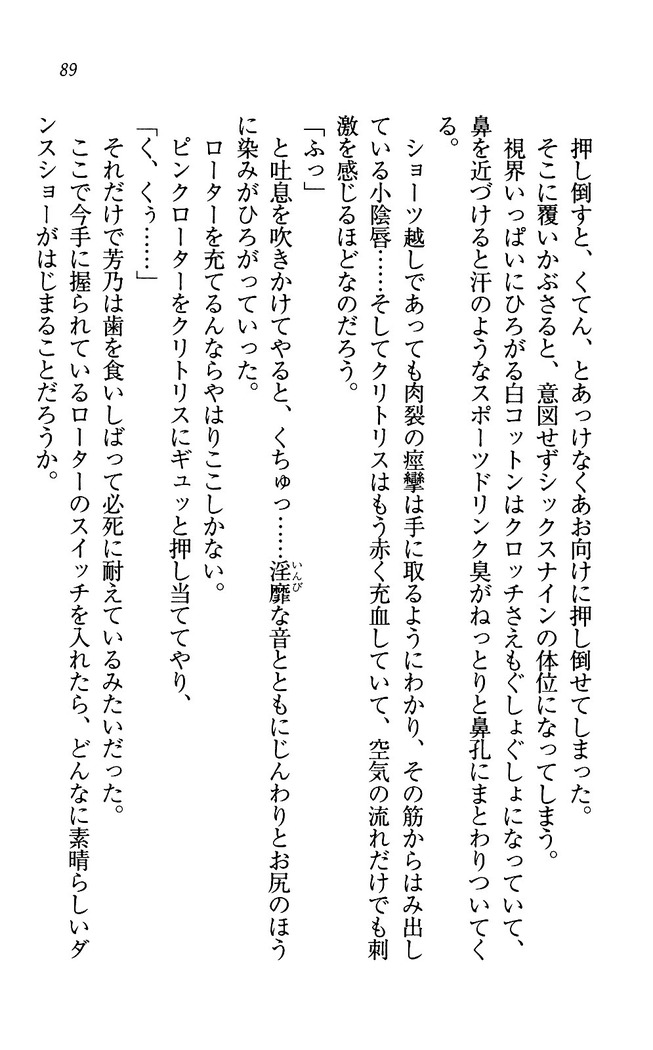 89
押し倒すと、くてん、とあっけなくあお向けに押し倒せてしまった。
そこに覆いかぶさると、意図せずシックスナインの体位になってしまう。
視界いっぱいにひろがる白コットンはクロッチさえもぐしょぐしょになっていて、
鼻を近づけると汗のようなスポーツドリンク臭がねっとりと鼻孔にまとわりついてく
る。
ショーツ越しであっても肉裂の痙攣は手に取るようにわかり、その筋からはみ出し
ている小陰唇……そしてクリトリスはもう赤く充血していて、空気の流れだけでも刺
激を感じるほどなのだろう。
「ふっ」
と吐息を吹きかけてやると、くちゅっ……淫靡な音とともにじんわりとお尻のほう
いんび
に染みがひろがっていった。
ローターを充てるんならやはりここしかない。
ピンクローターをクリトリスにギュッと押し当ててやり、
「く、くぅ……」
それだけで芳乃は歯を食いしばって必死に耐えているみたいだった。
ここで今手に握られているローターのスイッチを入れたら、どんなに素晴らしいダ
ンスショーがはじまることだろうか。